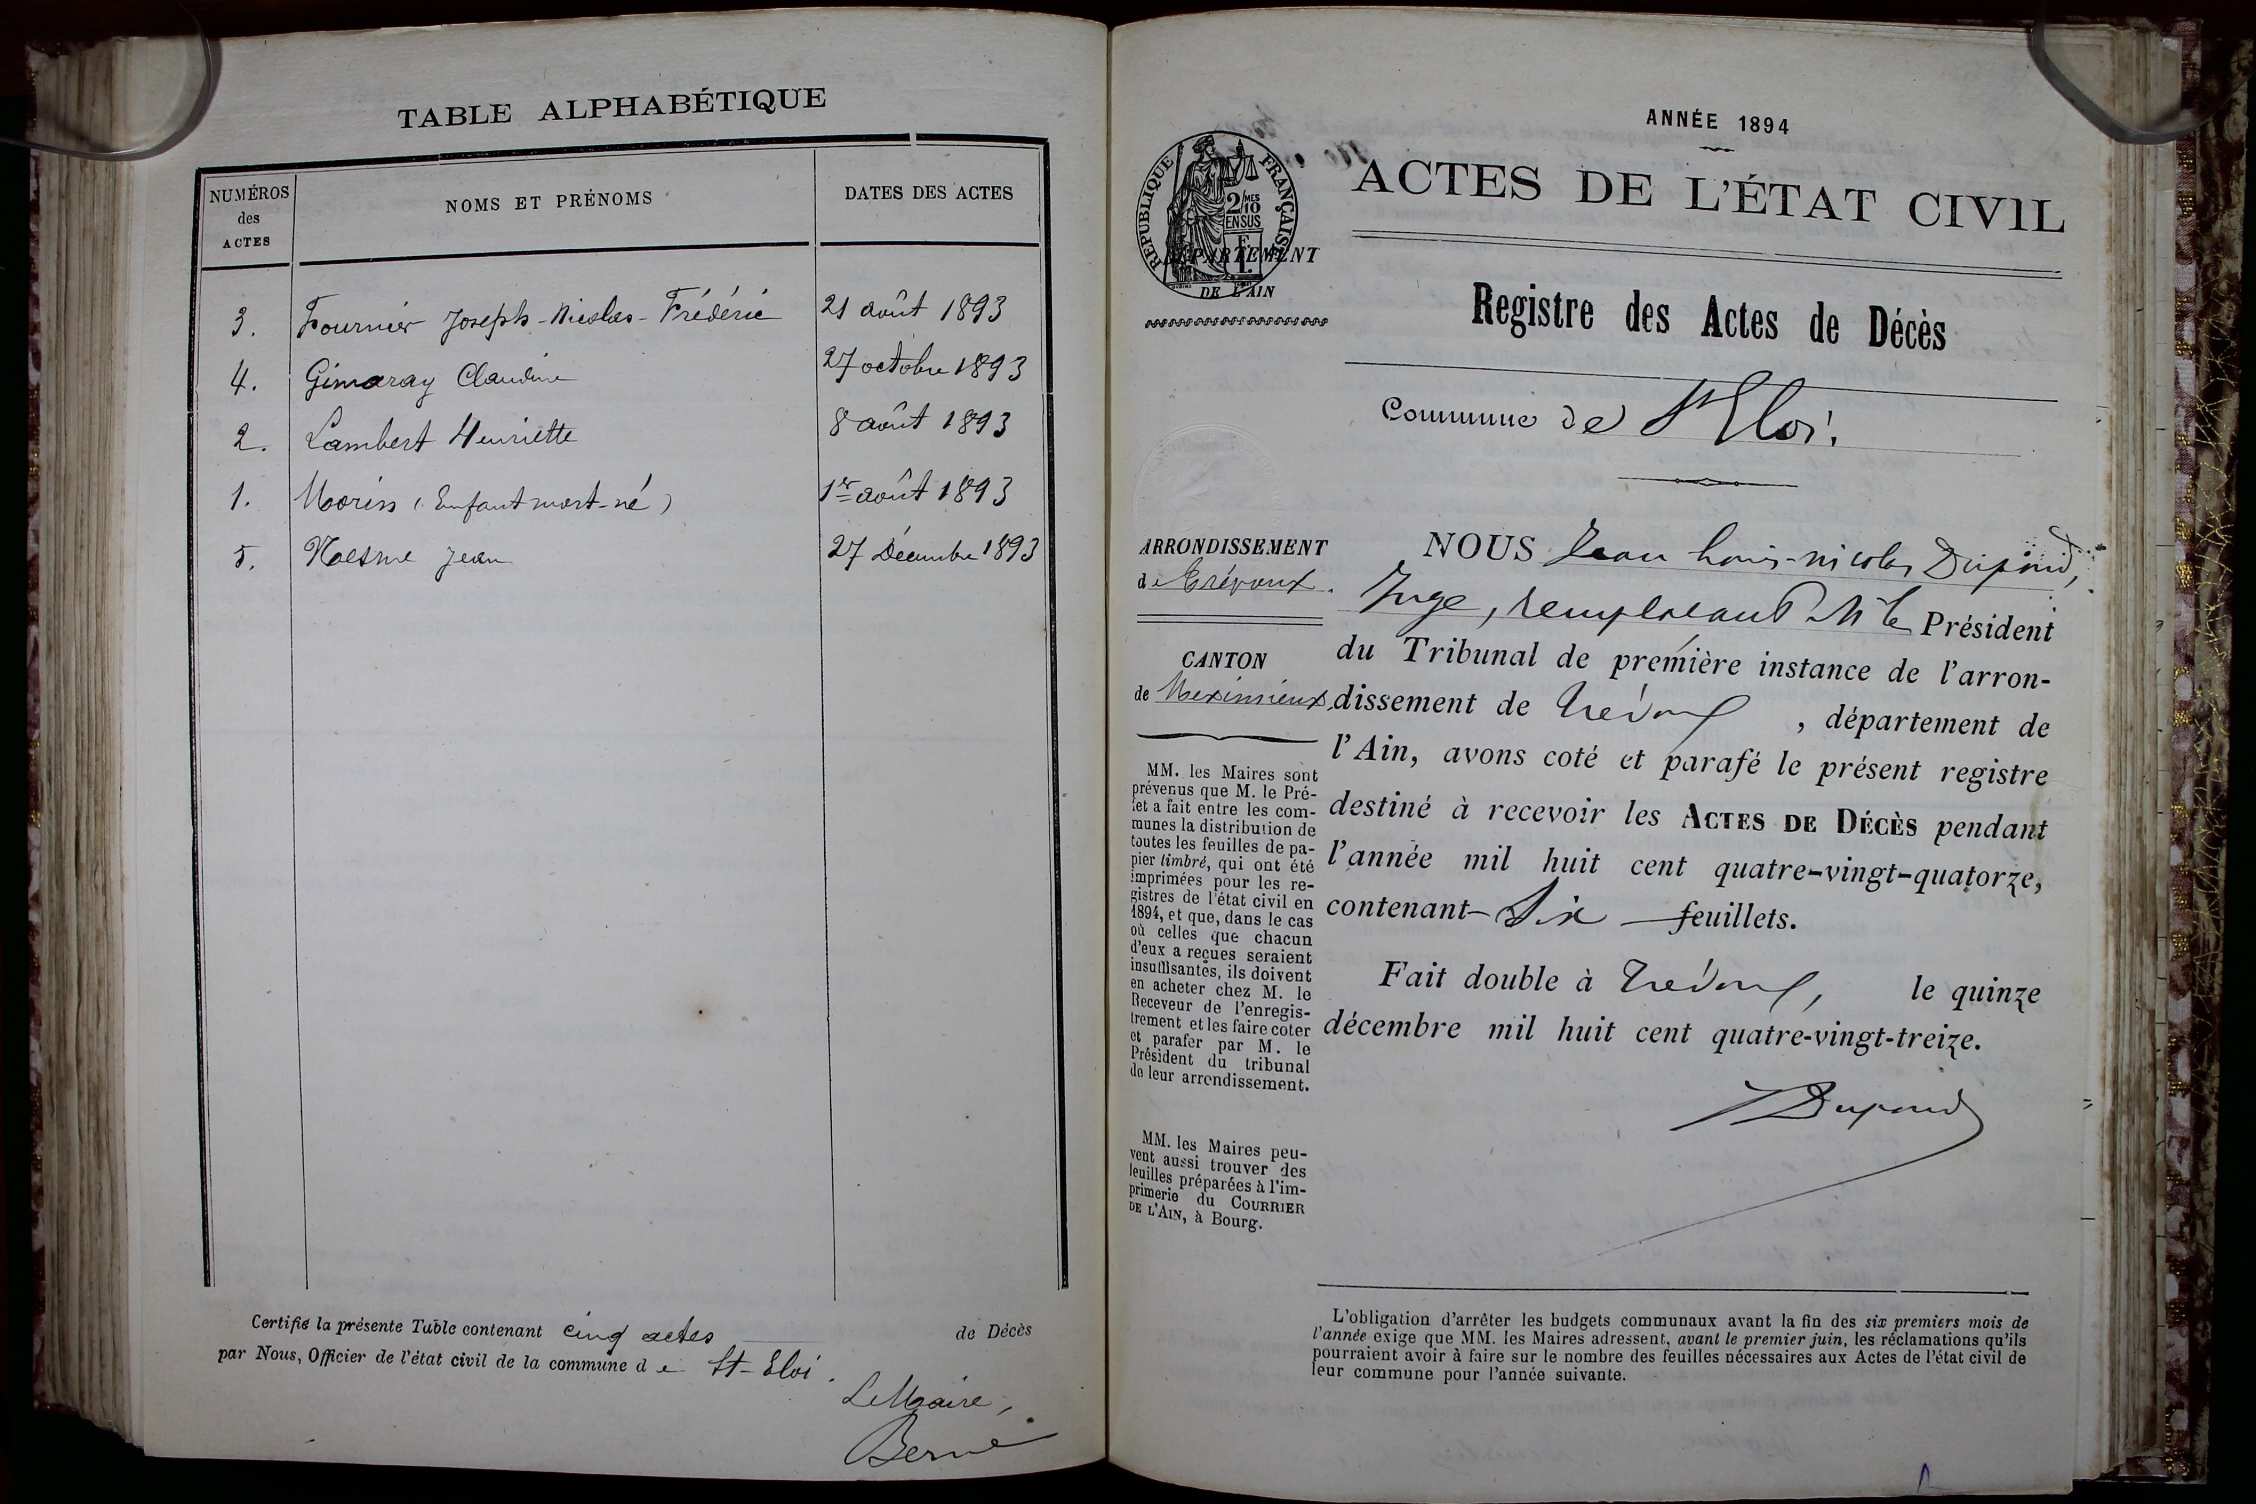 TABLE ALPHABÉTIQUE
NUMÉROS des ACTES | NOMS ET PRÉNOMS | DATES DES ACTES
3. Fournier Joseph-Nicolas-Frédéric 21 août 1893
4. Gimaray Claudine 27 octobre 1893
2. Lambert Henriette 8 août 1893
1. Morin (Enfant mort-né) 1er août 1893
5. Noesme Jean 27 Décembre 1893
Certifié la présente Table contenant cinq actes de Décès
par Nous, Officier de l'état civil de la commune de St-Eloi.
Le Maire,
Berne
ANNÉE 1894
ACTES DE L'ÉTAT CIVIL
RÉPUBLIQUE FRANÇAISE
2/10 MES
EN SUS
DÉPARTEMENT
DE L'AIN
Registre des Actes de Décès
Commune de St Eloi.
ARRONDISSEMENT
de Trévoux.
CANTON
de Meximieux
MM. les Maires sont
prévenus que M. le Pré-
fet a fait entre les com-
munes la distribution de
toutes les feuilles de pa-
pier timbré, qui ont été
imprimées pour les re-
gistres de l'état civil en
1894, et que, dans le cas
où celles que chacun
d'eux a reçues seraient
insuffisantes, ils doivent
en acheter chez M. le
Receveur de l'enregis-
trement et les faire coter
et parafer par M. le
Président du tribunal
de leur arrondissement.
MM. les Maires peu-
vent aussi trouver des
feuilles préparées à l'im-
primerie du COURRIER
DE L'AIN, à Bourg.
NOUS Jean Louis-nicolas Dupond,
Juge, remplaçant M le Président
du Tribunal de première instance de l'arron-
dissement de Trévoux, département de
l'Ain, avons coté et parafé le présent registre
destiné à recevoir les ACTES DE DÉCÈS pendant
l'année mil huit cent quatre-vingt-quatorze,
contenant Six feuillets.
Fait double à Trévoux, le quinze
décembre mil huit cent quatre-vingt-treize.
Dupond
L'obligation d'arrêter les budgets communaux avant la fin des six premiers mois de
l'année exige que MM. les Maires adressent, avant le premier juin, les réclamations qu'ils
pourraient avoir à faire sur le nombre des feuilles nécessaires aux Actes de l'état civil de
leur commune pour l'année suivante.